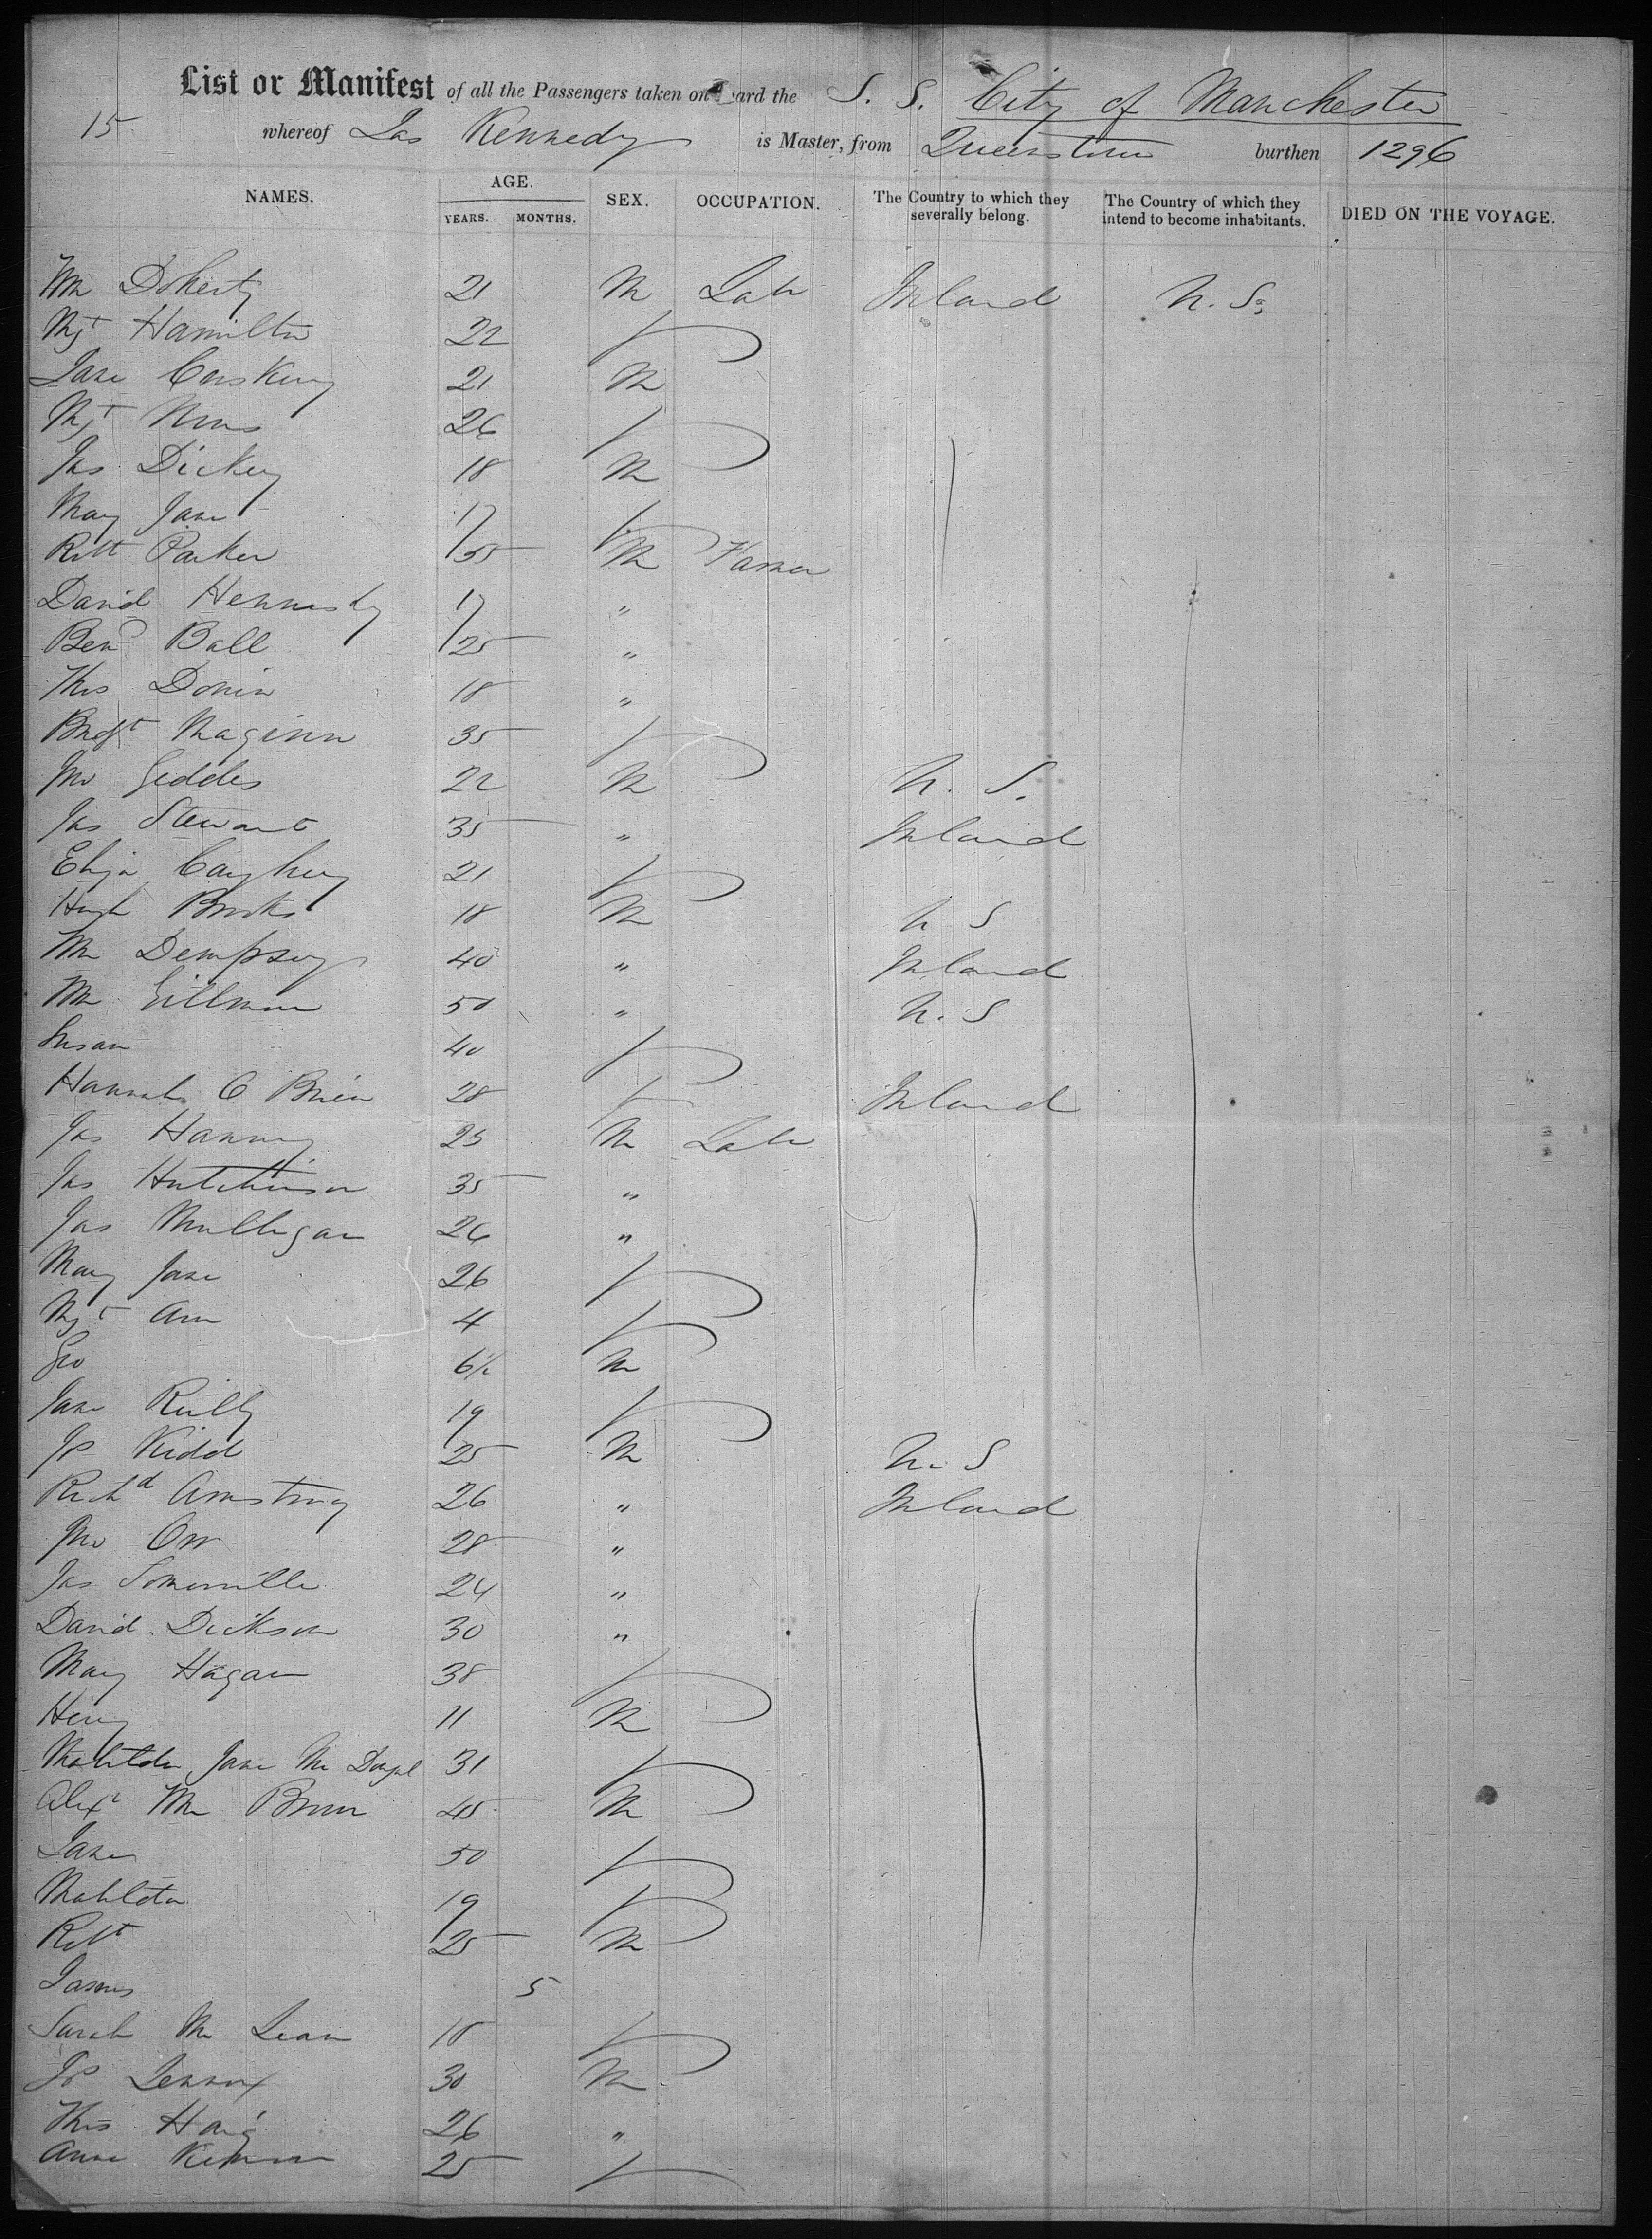 List or Manifest of all the Passengers taken on board the S. S. City of Manchester
15. whereof Jas Kennedy is Master, from Queenstown burthen 1296
NAMES. AGE. YEARS. MONTHS. SEX. OCCUPATION. The Country to which they severally belong. The Country of which they intend to become inhabitants. DIED ON THE VOYAGE.
Wm Doherty 21 M Labr Ireland U. S.
Mgt Hamilton 22 F
Jane 21 M
Mgt 26 F
Jas Dickey 18 M
Mary Jane 17 F
Robt Parker 35 M Farmer
David Hennesty 17 "
Benj Ball 25 "
Thos 18 "
Bridgt Maginn 35 F
Jno Geddes 22 M U. S.
Jas Stewart 35 " Ireland
Eliza Caughey 21 F
Hugh Brooks 18 M U S
Wm Dempsey 40 " Ireland
Wm Gillman 50 " U. S
Susan 40 F
Hannah O Brien 28 F Ireland
Jas Hanning 25 M Labr
Jas Hutchinson 35 "
Jas Mulligan 26 "
Mary Jane 26 F
Mgt Ann 4 F
Geo 6½ M
Jane Reilly 19 F
Js Kidd 25 M U. S
Richd Armstrong 26 " Ireland
Jno Orr 28 "
Jas Somerville 24 "
David Dickson 30 "
Mary Hagan 38 F
Henry 11 M
Mathilda Jane Mc 31 F
Alexr Mc 45 M
Jane 50 F
Mathilda 19 F
Robt 25 M
James 5
Sarah Mc Lean 18 F
Js Lennox 30 M
Thos Haig 26 "
Anne 25 F